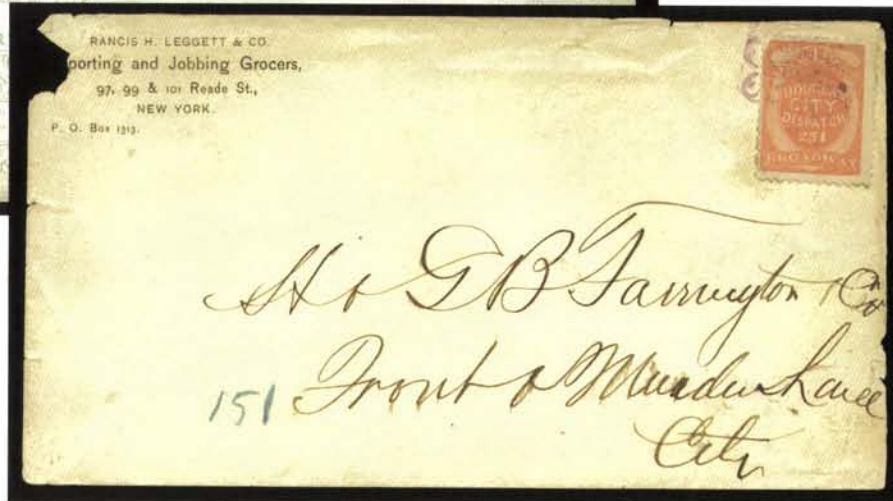 RANCIS H. LEGGETT & CO.
porting and Jobbing Grocers,
97, 99 & 101 Reade St.,
NEW YORK.
P. O. Box 1313.
CITY
DISPATCH
251
BROADWAY
H & G B Farrington Co
151 Front & Maiden Lane
City